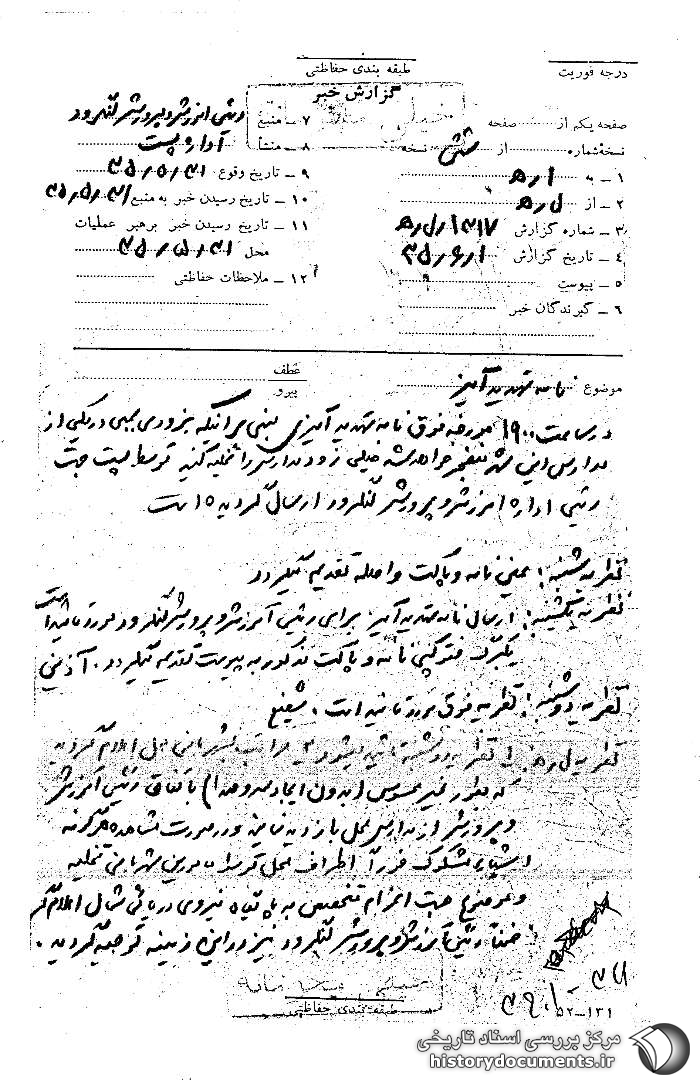 درجه فوریت
طبقه بندی حفاظتی
گزارش خبر
خیلی محرمانه
صفحه یکم از صفحه
نسخه شماره از شش نسخه
۱ – به ۱ر ه‍
۲ – از ل ر ه‍
۳ – شماره گزارش ۱۳۱۷ر ل ر ه‍
۴ – تاریخ گزارش ۳۵٫۶٫۱
۵ – پیوست
۶ – گیرندگان خبر
۷ – منبع رئیس آموزش و پرورش لنگرود
۸ – منشأ اداره پست
۹ – تاریخ وقوع ۳۵٫۵٫۳۱
۱۰ – تاریخ رسیدن خبر به منبع ۳۵٫۵٫۳۱
۱۱ – تاریخ رسیدن خبر برهبر عملیات
محل ۳۵٫۵٫۳۱
۱۲ – ملاحظات حفاظتی
موضوع نامه تهدید آمیز
عطف
پیرو
در ساعت ۱۹۰۰ مورخه فوق نامه تهدید آمیزی مبنی بر اینکه بزودی بمبی در یکی از
مدارس این شهر منفجر خواهد شد خیلی زود مدارس را تخلیه کنید توسط پست جهت
رئیس اداره آموزش و پرورش لنگرود ارسال گردیده است
نظریه شنبه: عین نامه و پاکت واصله تقدیم میگردد
نظریه یکشنبه: ارسال نامه تهدید آمیز برای رئیس آموزش و پرورش لنگرود مورد تائید است
یکبرگ فتوکپی نامه و پاکت مذکور به پیوست تقدیم میگردد. آذینی
نظریه دوشنبه: نظریه فوق مورد تائید است. شفیع
نظریه ل ر ه‍. با نظریه دوشنبه تائید میشود مراتب بشهربانی محل اعلام گردید
که بطور غیر محسوس (بدون ایجاد سر و صدا) با تفاق رئیس آموزش
و پرورش از مدارس محل بازدید نمایند و در صورت مشاهده هرگونه
اشیای مشکوک فوراً اطراف محل توسط مامورین شهربانی تخلیه
و موضوع جهت اعزام متخصص به پایگاه نیروی دریائی شمال اعلام گردد
ضمناً رئیس آموزش و پرورش لنگرود نیز در این زمینه توجیه گردید.
خیلی محرمانه
طبقه بندی حفاظتی
۵۲–۱۳۱
مرکز بررسی اسناد تاریخی
historydocuments.ir